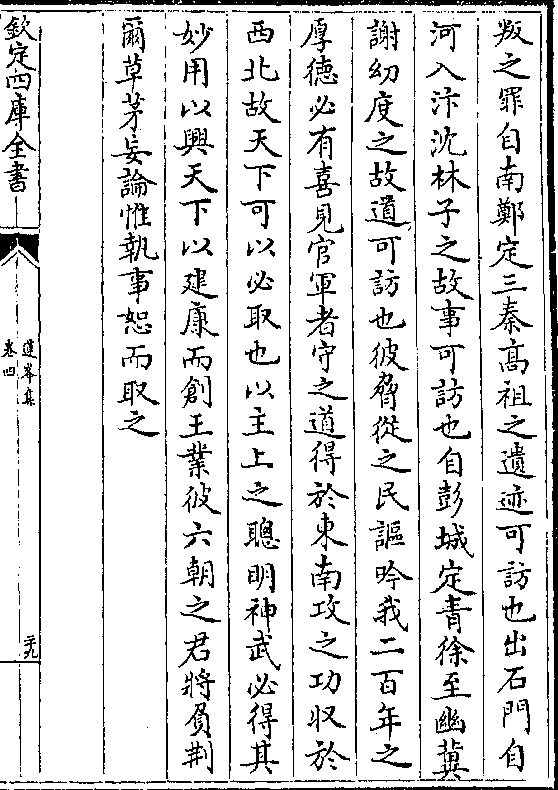 叛之罪自南鄭定三秦髙祖之遺迹可訪也出石門自
河入汴沈林子之故事可訪也自彭城定青徐至幽冀
謝幼度之故道可訪也彼脅從之民謳吟我二百年之
厚德必有喜見官軍者守之道得於東南攻之功収於
西北故天下可以必取也以主上之聰明神武必得其
妙用以興天下以建康而創王業彼六朝之君將負荆
爾草茅妄論惟執事恕而取之
欽定四庫全書
蓮峯集
卷四
二十九